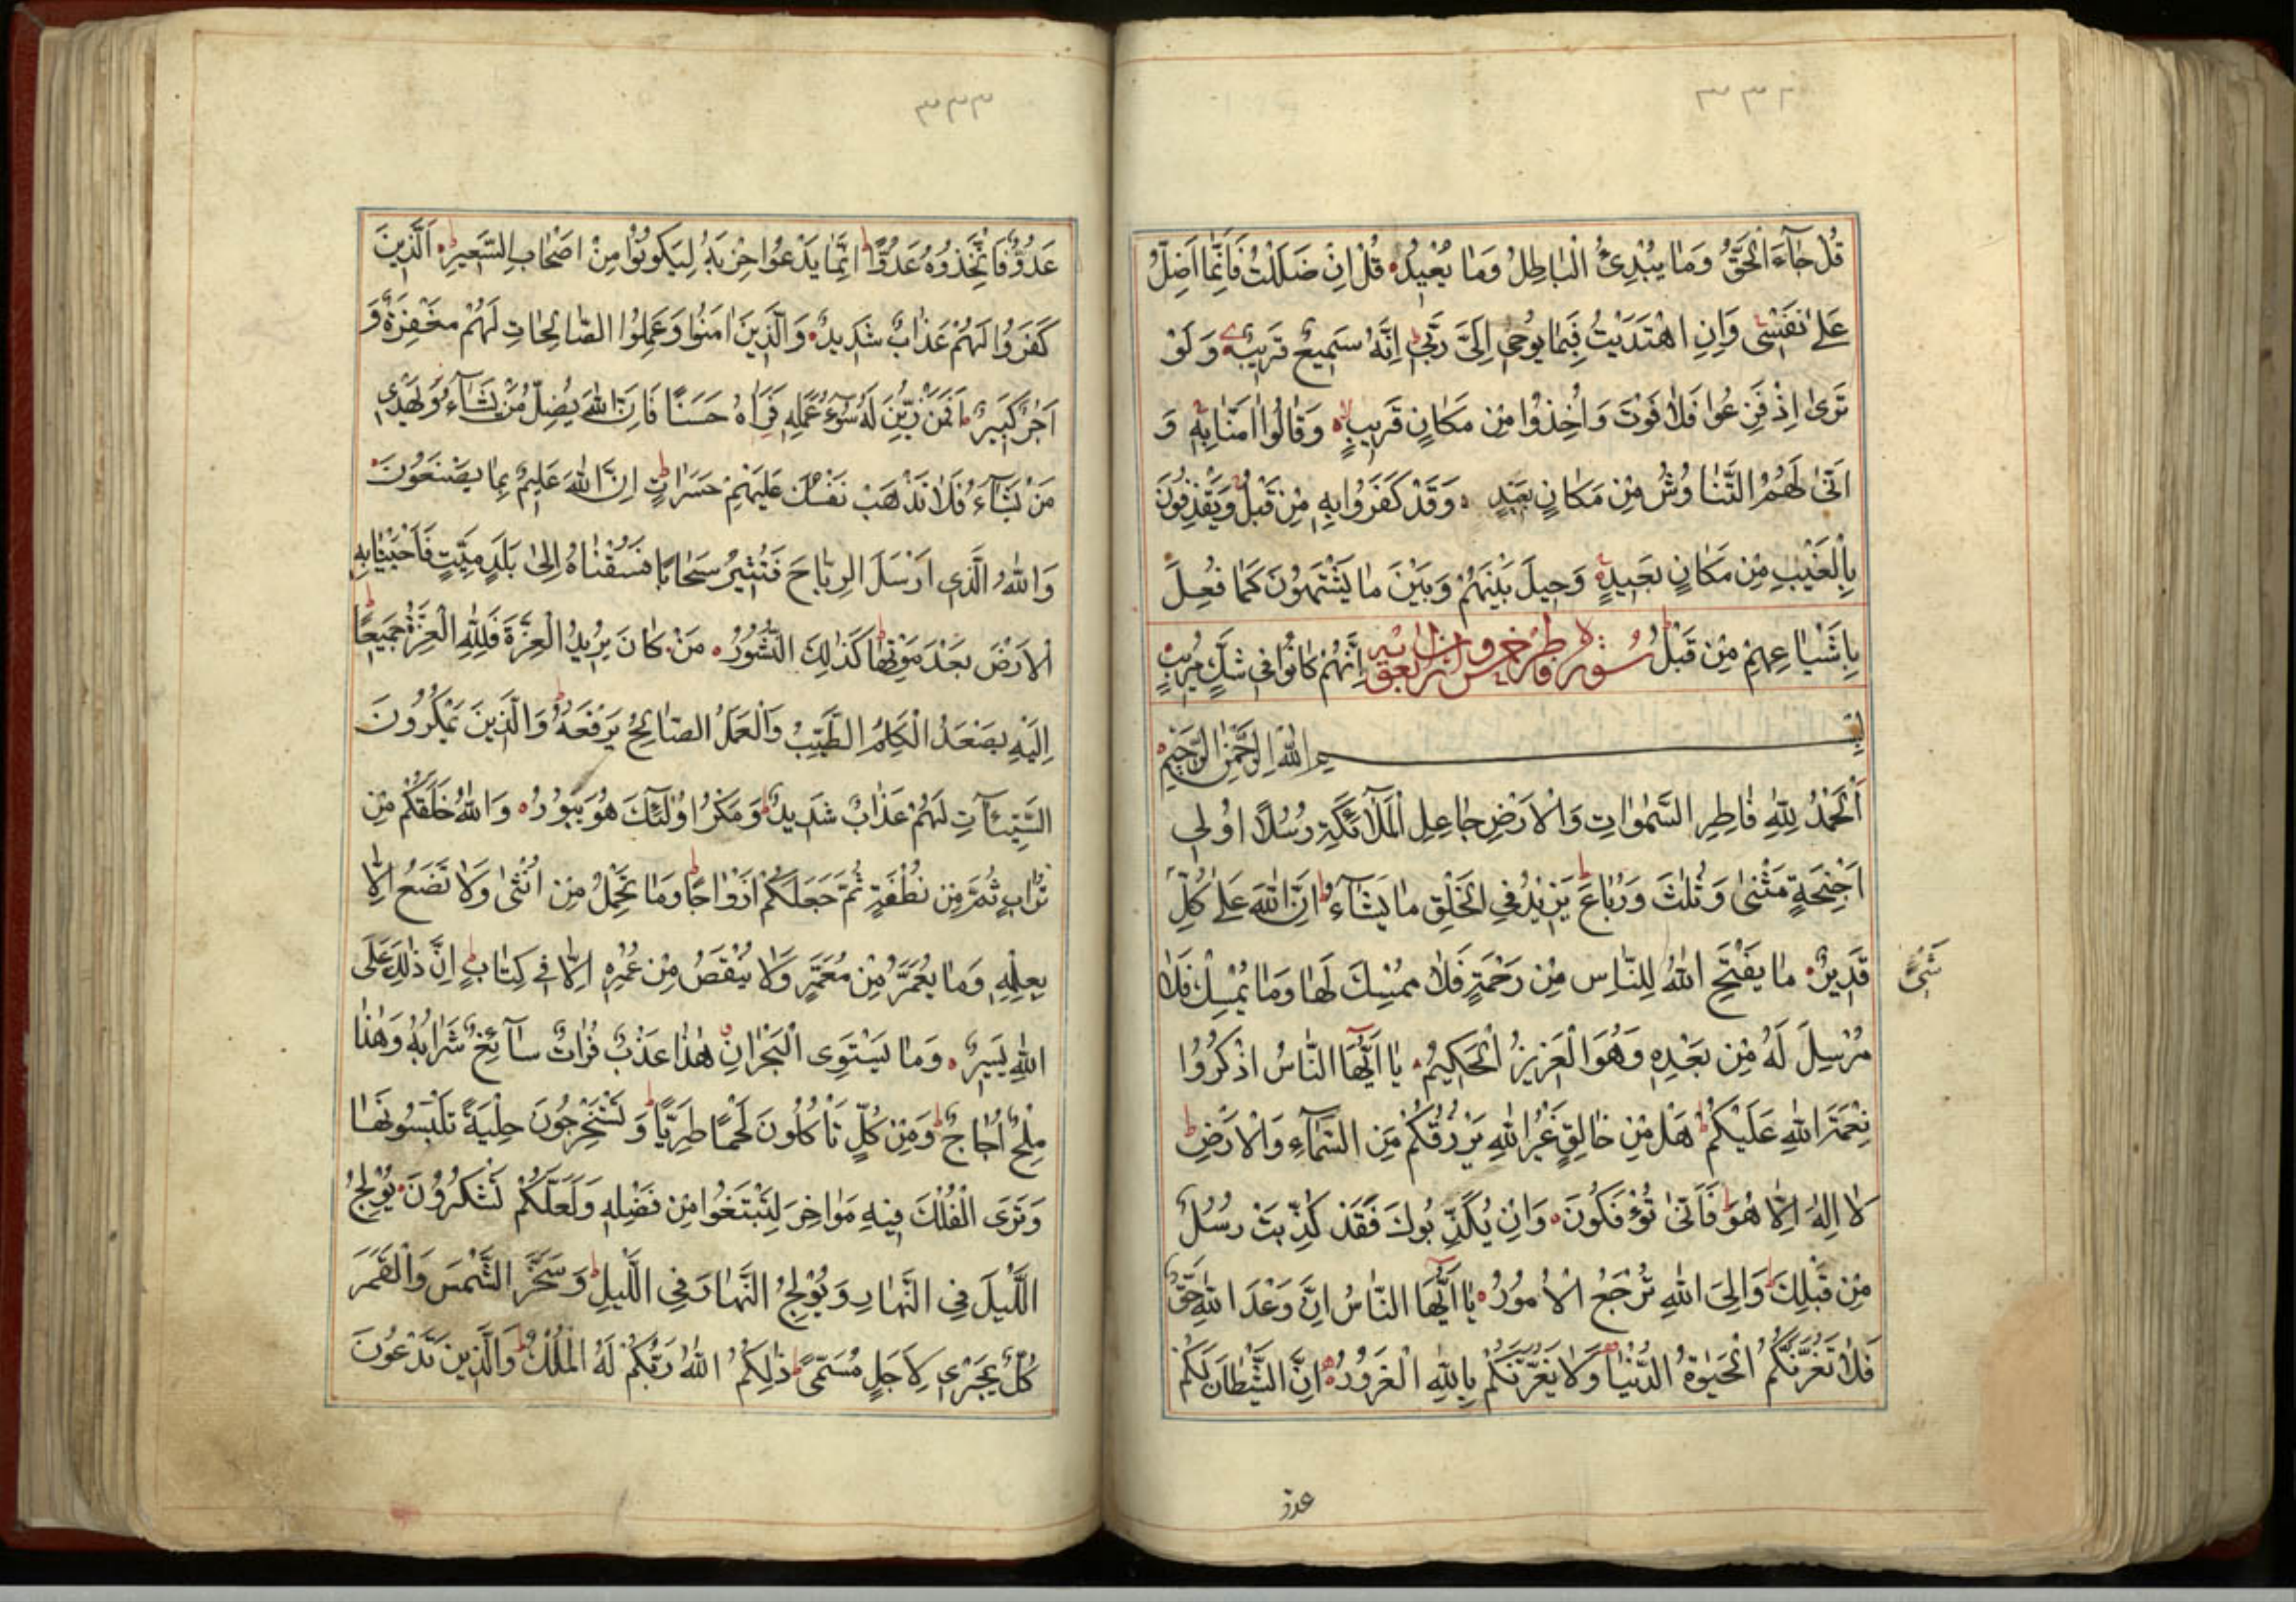 ٣٣٢
قُلْ جَآءَ الْحَقُّ وَمَا يُبْدِئُ الْبَاطِلُ وَمَا يُعِيدُ قُلْ اِنْ ضَلَلْتُ فَاِنَّمَا اَضِلُّ
عَلٰى نَفْسِى وَاِنِ اهْتَدَيْتُ فَبِمَا يُوحِى اِلَىَّ رَبِّى اِنَّهُ سَمِيعٌ قَرِيبٌ وَلَوْ
تَرٰى اِذْ فَزِعُوا فَلَا فَوْتَ وَاُخِذُوا مِنْ مَكَانٍ قَرِيبٍ وَقَالُوا اٰمَنَّا بِهِ وَ
اَنّٰى لَهُمُ التَّنَاوُشُ مِنْ مَكَانٍ بَعِيدٍ وَقَدْ كَفَرُوا بِهِ مِنْ قَبْلُ وَيَقْذِفُونَ
بِالْغَيْبِ مِنْ مَكَانٍ بَعِيدٍ وَحِيلَ بَيْنَهُمْ وَبَيْنَ مَا يَشْتَهُونَ كَمَا فُعِلَ
بِاَشْيَاعِهِمْ مِنْ قَبْلُ سورة فاطر خمس واربعون اية اِنَّهُمْ كَانُوا فِى شَكٍّ مُرِيبٍ
بِسْمِ اللّٰهِ الرَّحْمٰنِ الرَّحِيمِ
اَلْحَمْدُ لِلّٰهِ فَاطِرِ السَّمٰوَاتِ وَالْاَرْضِ جَاعِلِ الْمَلَآئِكَةِ رُسُلًا اُولِى
اَجْنِحَةٍ مَثْنٰى وَثُلٰثَ وَرُبَاعَ يَزِيدُ فِى الْخَلْقِ مَا يَشَآءُ اِنَّ اللّٰهَ عَلٰى كُلِّ
شَىْءٍ
قَدِيرٌ مَا يَفْتَحِ اللّٰهُ لِلنَّاسِ مِنْ رَحْمَةٍ فَلَا مُمْسِكَ لَهَا وَمَا يُمْسِكْ فَلَا
مُرْسِلَ لَهُ مِنْ بَعْدِهِ وَهُوَ الْعَزِيزُ الْحَكِيمُ يَا اَيُّهَا النَّاسُ اذْكُرُوا
نِعْمَتَ اللّٰهِ عَلَيْكُمْ هَلْ مِنْ خَالِقٍ غَيْرُ اللّٰهِ يَرْزُقُكُمْ مِنَ السَّمَآءِ وَالْاَرْضِ
لَا اِلٰهَ اِلَّا هُوَ فَاَنّٰى تُؤْفَكُونَ وَاِنْ يُكَذِّبُوكَ فَقَدْ كُذِّبَتْ رُسُلٌ
مِنْ قَبْلِكَ وَاِلَى اللّٰهِ تُرْجَعُ الْاُمُورُ يَا اَيُّهَا النَّاسُ اِنَّ وَعْدَ اللّٰهِ حَقٌّ
فَلَا تَغُرَّنَّكُمُ الْحَيٰوةُ الدُّنْيَا وَلَا يَغُرَّنَّكُمْ بِاللّٰهِ الْغَرُورُ اِنَّ الشَّيْطَانَ لَكُمْ
عدو
٣٣٣
عَدُوٌّ فَاتَّخِذُوهُ عَدُوًّا اِنَّمَا يَدْعُوا حِزْبَهُ لِيَكُونُوا مِنْ اَصْحَابِ السَّعِيرِ اَلَّذِينَ
كَفَرُوا لَهُمْ عَذَابٌ شَدِيدٌ وَالَّذِينَ اٰمَنُوا وَعَمِلُوا الصَّالِحَاتِ لَهُمْ مَغْفِرَةٌ وَ
اَجْرٌ كَبِيرٌ اَفَمَنْ زُيِّنَ لَهُ سُوٓءُ عَمَلِهِ فَرَاٰهُ حَسَنًا فَاِنَّ اللّٰهَ يُضِلُّ مَنْ يَشَآءُ وَيَهْدِى
مَنْ يَشَآءُ فَلَا تَذْهَبْ نَفْسُكَ عَلَيْهِمْ حَسَرَاتٍ اِنَّ اللّٰهَ عَلِيمٌ بِمَا يَصْنَعُونَ
وَاللّٰهُ الَّذِى اَرْسَلَ الرِّيَاحَ فَتُثِيرُ سَحَابًا فَسُقْنَاهُ اِلٰى بَلَدٍ مَيِّتٍ فَاَحْيَيْنَا بِهِ
الْاَرْضَ بَعْدَ مَوْتِهَا كَذٰلِكَ النُّشُورُ مَنْ كَانَ يُرِيدُ الْعِزَّةَ فَلِلّٰهِ الْعِزَّةُ جَمِيعًا
اِلَيْهِ يَصْعَدُ الْكَلِمُ الطَّيِّبُ وَالْعَمَلُ الصَّالِحُ يَرْفَعُهُ وَالَّذِينَ يَمْكُرُونَ
السَّيِّئَاتِ لَهُمْ عَذَابٌ شَدِيدٌ وَمَكْرُ اُولٰٓئِكَ هُوَ يَبُورُ وَاللّٰهُ خَلَقَكُمْ مِنْ
تُرَابٍ ثُمَّ مِنْ نُطْفَةٍ ثُمَّ جَعَلَكُمْ اَزْوَاجًا وَمَا تَحْمِلُ مِنْ اُنْثٰى وَلَا تَضَعُ اِلَّا
بِعِلْمِهِ وَمَا يُعَمَّرُ مِنْ مُعَمَّرٍ وَلَا يُنْقَصُ مِنْ عُمُرِهِ اِلَّا فِى كِتَابٍ اِنَّ ذٰلِكَ عَلَى
اللّٰهِ يَسِيرٌ وَمَا يَسْتَوِى الْبَحْرَانِ هٰذَا عَذْبٌ فُرَاتٌ سَآئِغٌ شَرَابُهُ وَهٰذَا
مِلْحٌ اُجَاجٌ وَمِنْ كُلٍّ تَاْكُلُونَ لَحْمًا طَرِيًّا وَتَسْتَخْرِجُونَ حِلْيَةً تَلْبَسُونَهَا
وَتَرَى الْفُلْكَ فِيهِ مَوَاخِرَ لِتَبْتَغُوا مِنْ فَضْلِهِ وَلَعَلَّكُمْ تَشْكُرُونَ يُولِجُ
اللَّيْلَ فِى النَّهَارِ وَيُولِجُ النَّهَارَ فِى اللَّيْلِ وَسَخَّرَ الشَّمْسَ وَالْقَمَرَ
كُلٌّ يَجْرِى لِاَجَلٍ مُسَمًّى ذٰلِكُمُ اللّٰهُ رَبُّكُمْ لَهُ الْمُلْكُ وَالَّذِينَ تَدْعُونَ